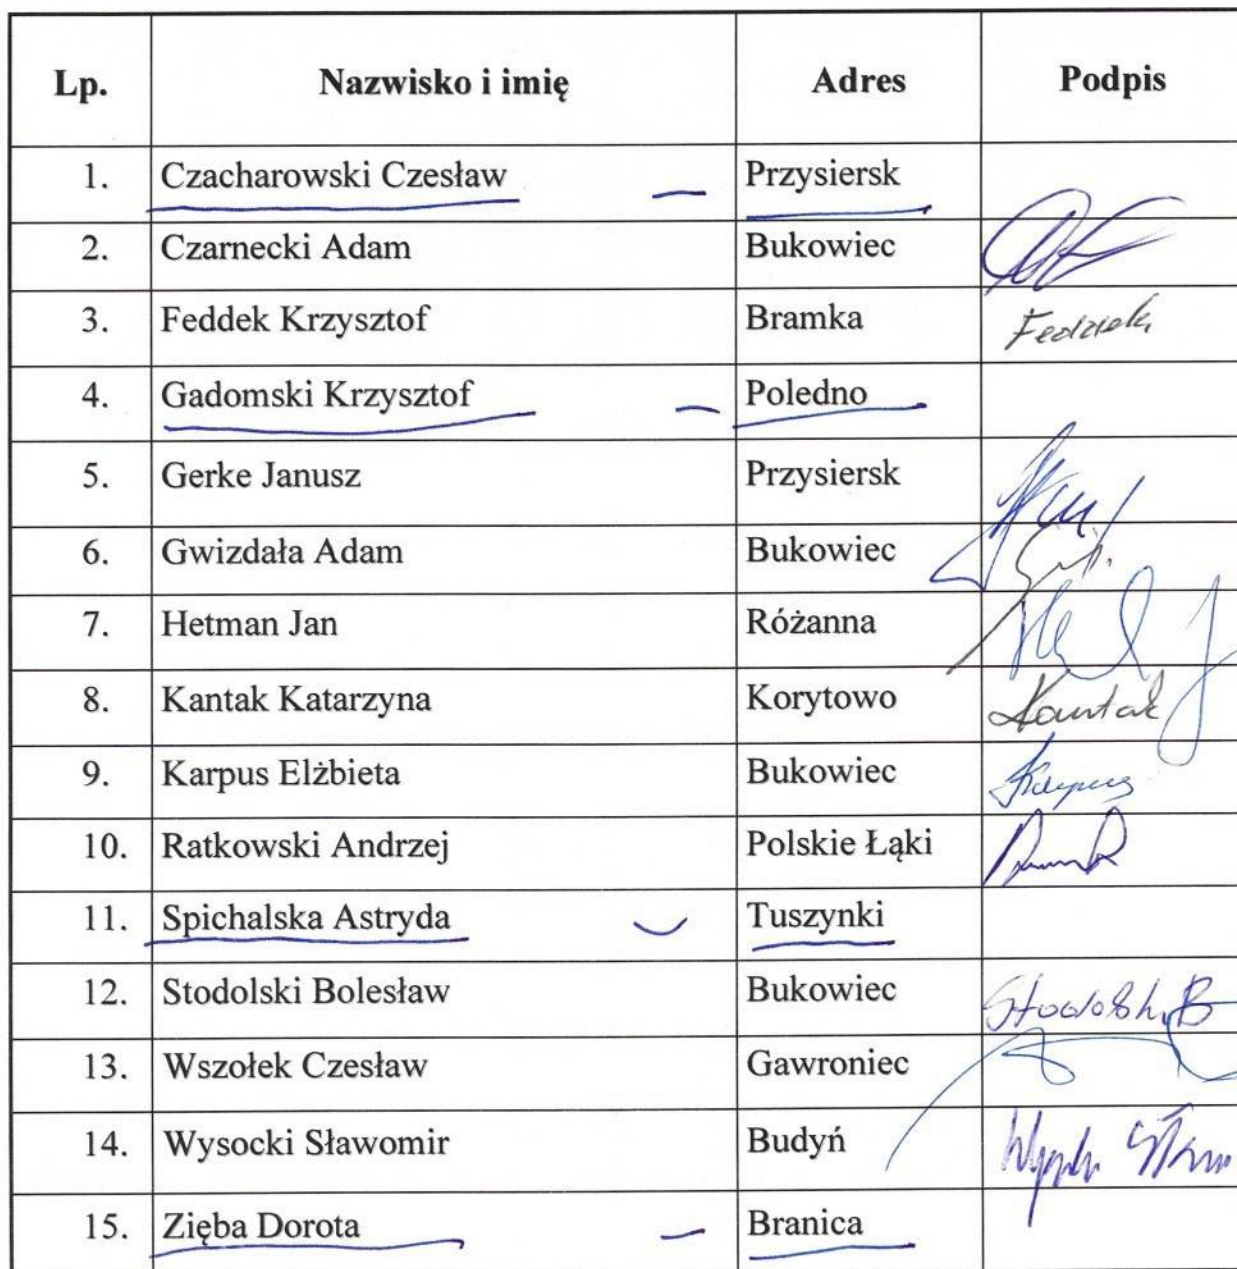 Lp. Nazwisko i imię Adres Podpis
1. Czacharowski Czesław Przysiersk
2. Czarnecki Adam Bukowiec
3. Feddek Krzysztof Bramka
4. Gadomski Krzysztof Poledno
5. Gerke Janusz Przysiersk
6. Gwizdała Adam Bukowiec
7. Hetman Jan Różanna
8. Kantak Katarzyna Korytowo Kantak
9. Karpus Elżbieta Bukowiec Karpus
10. Ratkowski Andrzej Polskie Łąki
11. Spichalska Astryda Tuszynki
12. Stodolski Bolesław Bukowiec
13. Wszołek Czesław Gawroniec
14. Wysocki Sławomir Budyń
15. Zięba Dorota Branica